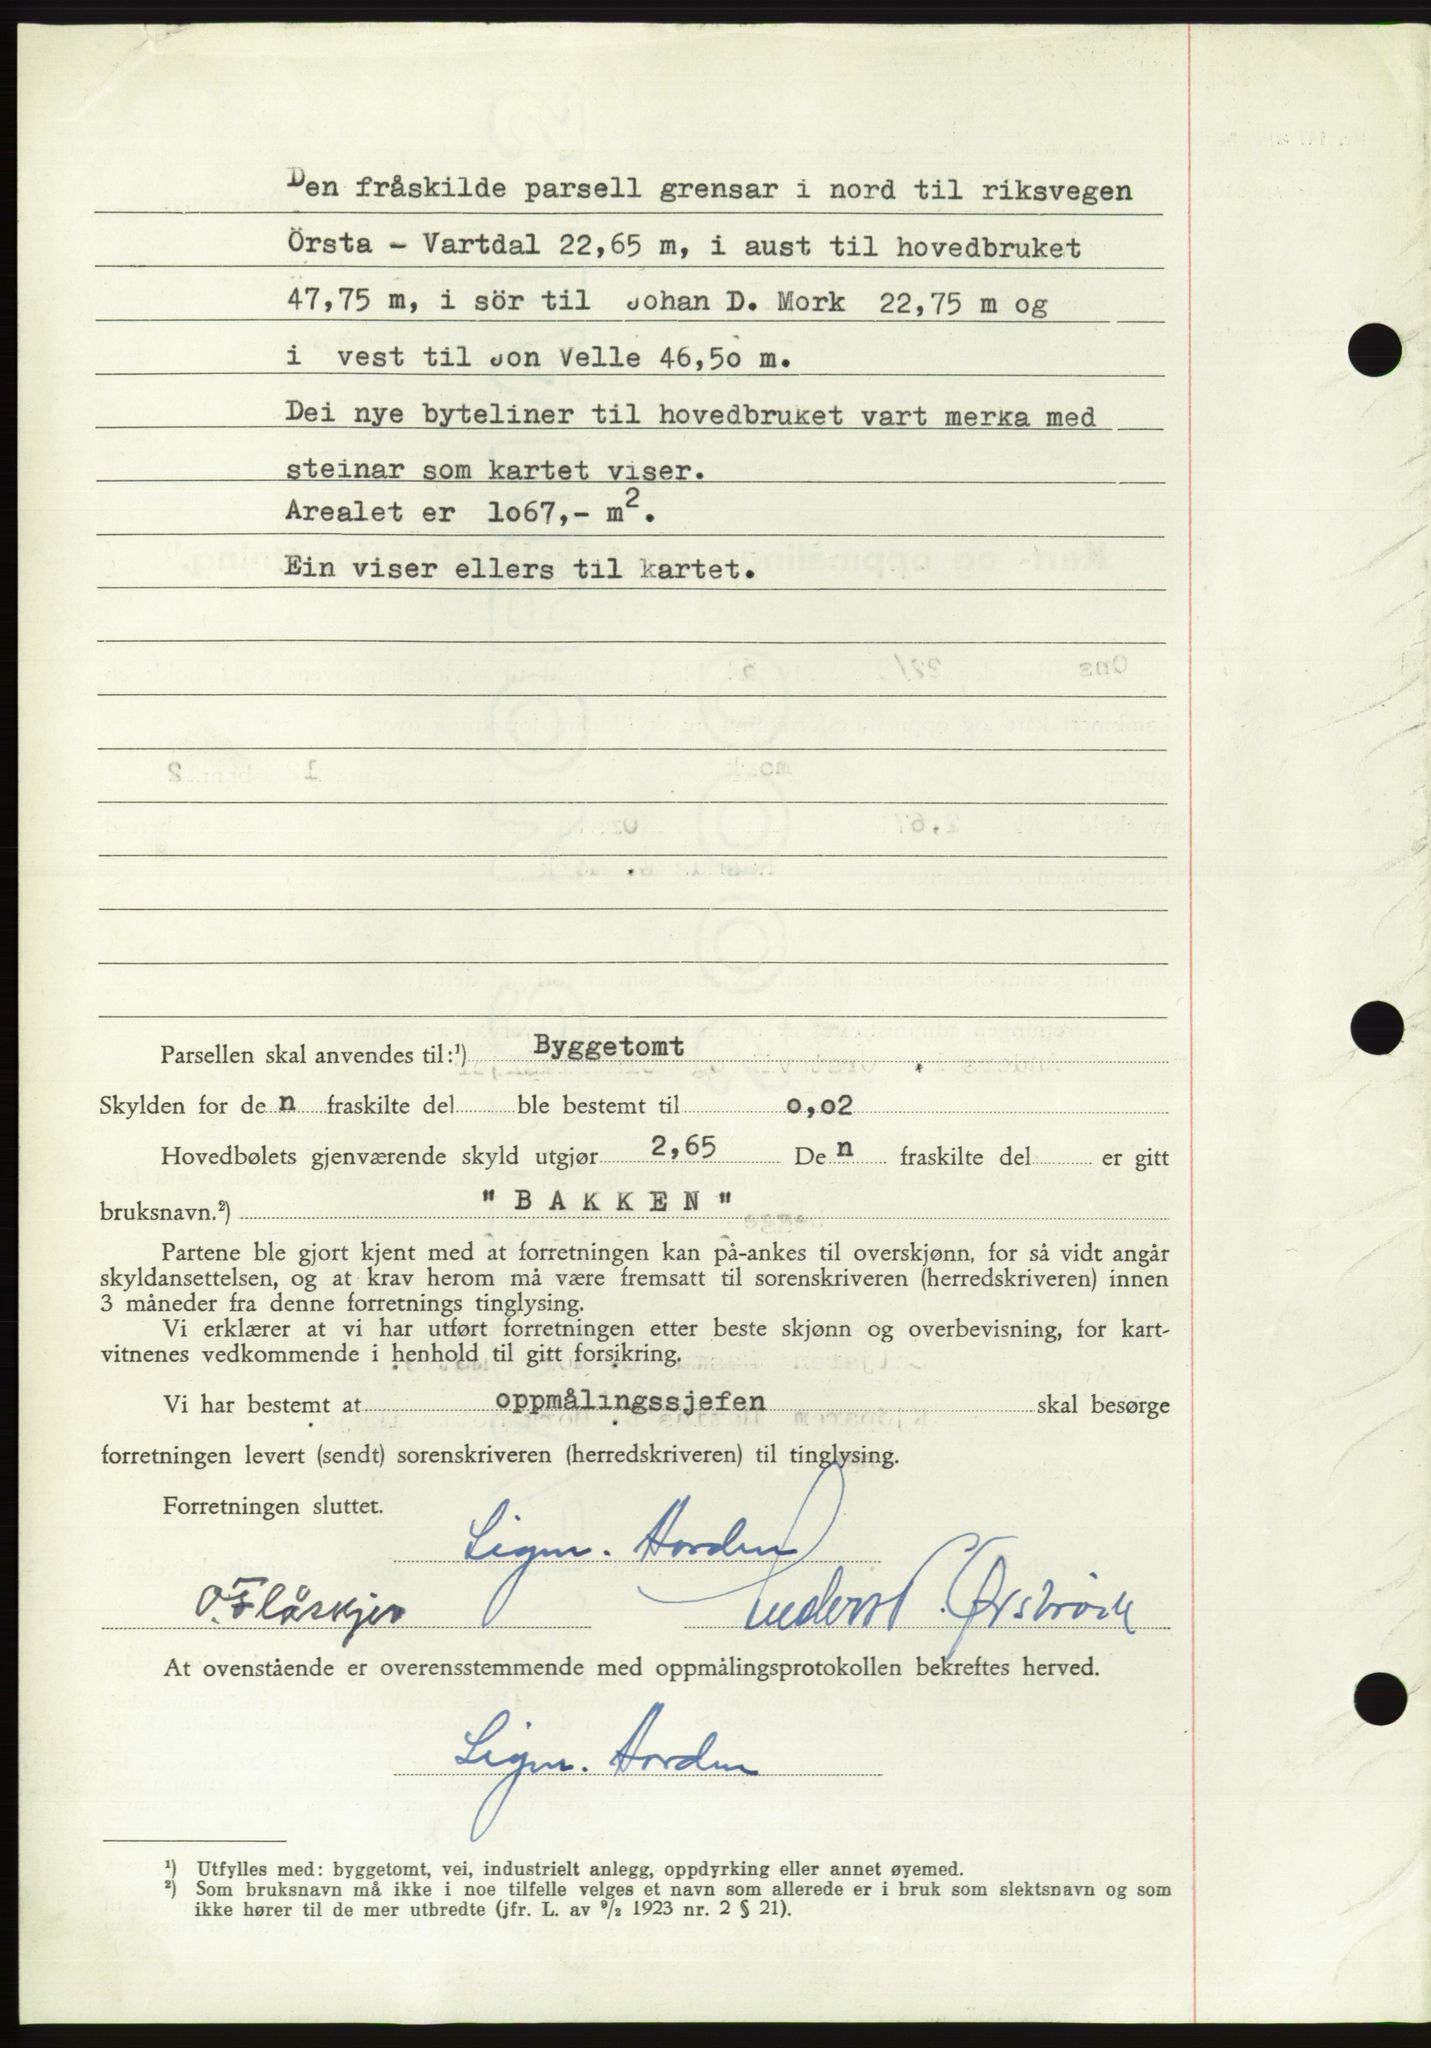 Den fråskilde parsell grensar i nord til riksvegen
Örsta - Vartdal 22,65 m, i aust til hovedbruket
47,75 m, i sör til Johan D. Mork 22,75 m og
i vest til Jon Velle 46,50 m.
Dei nye byteliner til hovedbruket vart merka med
steinar som kartet viser.
Arealet er 1067,- m².
Ein viser ellers til kartet.
Parsellen skal anvendes til:¹) Byggetomt
Skylden for de n fraskilte del ble bestemt til 0,02
Hovedbølets gjenværende skyld utgjør 2,65 De n fraskilte del er gitt
bruksnavn.²) "BAKKEN"
Partene ble gjort kjent med at forretningen kan på-ankes til overskjønn, for så vidt angår
skyldansettelsen, og at krav herom må være fremsatt til sorenskriveren (herredskriveren) innen
3 måneder fra denne forretnings tinglysing.
Vi erklærer at vi har utført forretningen etter beste skjønn og overbevisning, for kart-
vitnenes vedkommende i henhold til gitt forsikring.
Vi har bestemt at oppmålingssjefen skal besørge
forretningen levert (sendt) sorenskriveren (herredskriveren) til tinglysing.
Forretningen sluttet.
Sigm. Hovden
O. Flåskjer Anders P. Ørsbrøde
At ovenstående er overensstemmende med oppmålingsprotokollen bekreftes herved.
Sigm. Hovden
¹) Utfylles med: byggetomt, vei, industrielt anlegg, oppdyrking eller annet øyemed.
²) Som bruksnavn må ikke i noe tilfelle velges et navn som allerede er i bruk som slektsnavn og som
ikke hører til de mer utbredte (jfr. L. av ⁹/₂ 1923 nr. 2 § 21).